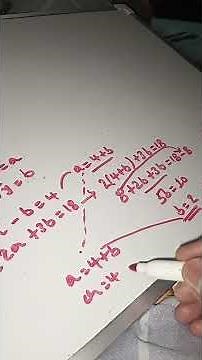 = a
y = b
- b = 4
2a + 3b = 18 →
a = 4+b
2(4+b)+3b=18
8+2b+3b=18
5b=10
b=2
a=4+b
a=4